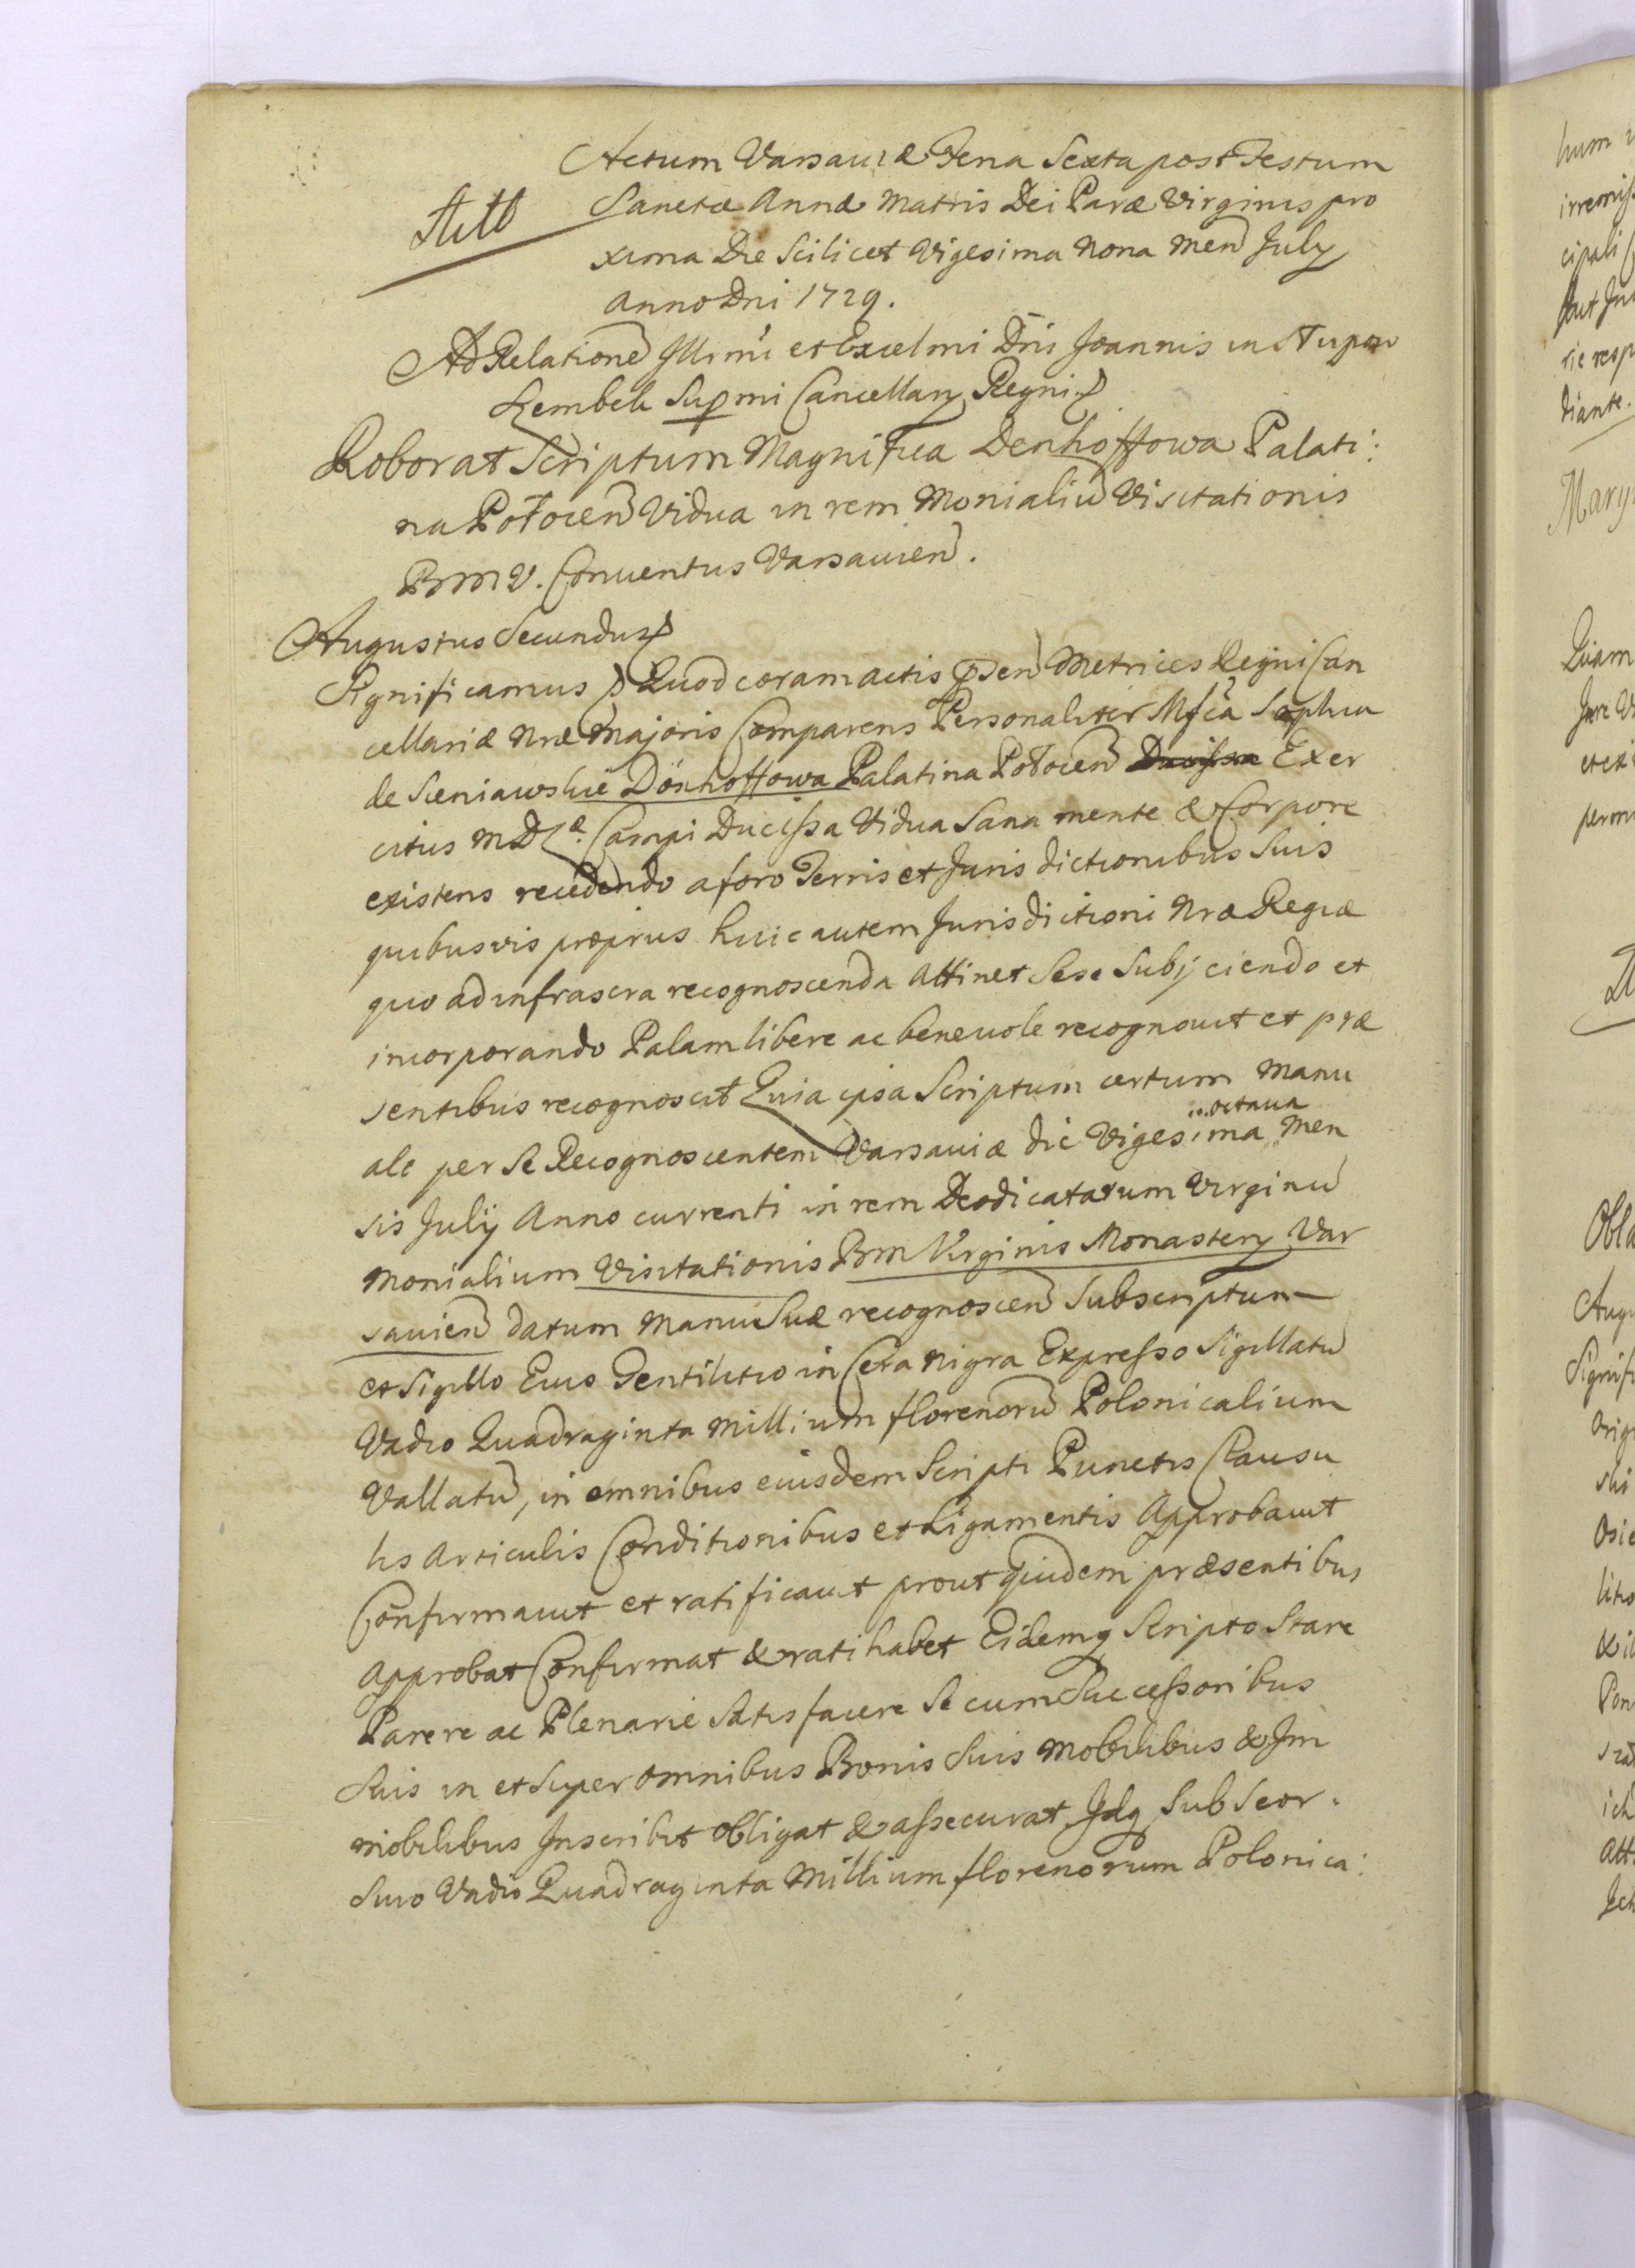 Actum Varsaviæ Feria Sexta post Festum
Sanctæ Annæ Matris Dei Paræ Virginis pro
xima Die Scilicet Vigesima Nona Men July
Anno Dni 1729.
Ad Relatione Illrmi et Excelmi Dni Joannis in Słupow
Szembek Supmi Cancellary Regni
Roborat Scriptum Magnifica Denhoffowa Palati:
na Połocen Vidua in rem Monialiu Visitationis
BMV. Conventus Varsavien.
Augustus Secundus
Significamus Quod coram actis pnsen Metrices Regni Can
cellariæ Nræ Majoris Comparens Personaliter Mfca Sophia
de Sieniawskie Dönhoffowa Palatina Połocen Ducissa Exer
citus MDL. Campi Ducissa Vidua Sana mente & Corpore
existens recedendo a foro Terris et Jurisdictionibus Suis
quibusvis proprius huic autem Jurisdictioni Nræ Regiæ
quo ad infrascra recognoscenda Attinet Sese Subjiciendo et
incorporando Palam libere ac benevole recognovit et præ
sentibus recognoscit Quia ipsa Scriptum certum Manu
ale per Se Recognoscentem Varsaviæ die Vigesima octava Men
sis Julij Anno currenti in rem Deodicatarum Virginu
Monialium Visitationis BM Virginis Monastery Var
savien datum Manu Suæ recognoscen Subscriptum
et Sigillo Eius Gentilitio in Cera Nigra Expresso Sigillatu
Vadio Quadraginta Millium florenoru Polonicalium
Vallatu, in omnibus eiusdem Scripti Punctis Clausu
lis Articulis Conditionibus et Ligamentis Approbavit
Confirmavit et ratificavit prout quidem præsentibus
Approbat Confirmat & ratihabet Eidemq Scripto Stare
Parere ac Plenarie Satisfacere Se cum Successoribus
Suis in et Super omnibus Bonis Suis Mobilibus & Im
mobilibus Inscribit obligat & assecurat, Idq Sub Seor:
Suo Vadio Quadraginta Millium florenorum Polonica: